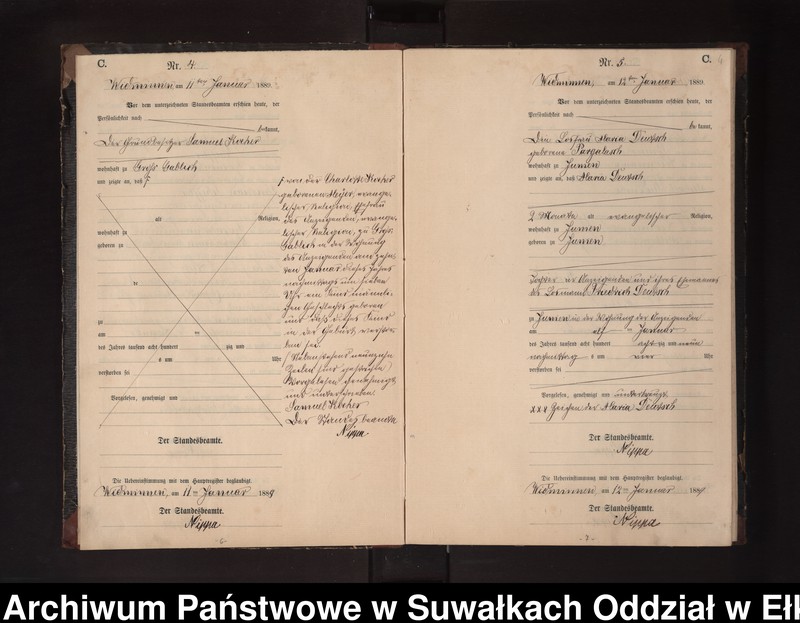 C.
Nr. 4.
Widminnen am 11ten Januar 1889.
Vor dem unterzeichneten Standesbeamten erschien heute, der
Persönlichkeit nach
bekannt,
Der Grundbesitzer Samuel Kocher
wohnhaft zu Groß Gablick
und zeigte an, daß
alt Religion,
wohnhaft zu
geboren zu
zu
am
des Jahres tausend acht hundert zig und
um Uhr
verstorben sei
Vorgelesen, genehmigt und
von der Charlotte Kocher
geborenen Meyer, evange-
lischer Religion, Ehefrau
des Anzeigenden, evange-
lischer Religion, zu Groß
Gablick in der Wohnung
des Anzeigenden am zehn-
ten Januar dieses Jahres
nachmittags um sieben
Uhr ein Kind männli-
chen Geschlechts geboren
und daß dieses Kind
in der Geburt verstor-
ben sei.
Vorgelesen, genehmigt
und unterschrieben
Samuel Kocher
Der Standesbeamte
Nippa
Der Standesbeamte.
Die Uebereinstimmung mit dem Hauptregister beglaubigt.
Widminnen, am 11ten Januar 1889
Der Standesbeamte.
Nippa
- 6 -
C.
Nr. 5.
Widminnen, am 12ten Januar 1889.
Vor dem unterzeichneten Standesbeamten erschien heute, der
Persönlichkeit nach
bekannt,
Die Losfrau Maria
geborene
wohnhaft zu
und zeigte an, daß Maria
2 Monate alt evangelischer Religion,
wohnhaft zu
geboren zu
Tochter der Anzeigenden und ihres Ehemannes
des Losmanns Friedrich
zu in der Wohnung der Anzeigenden
am elften Januar
des Jahres tausend acht hundert achtzig und neun
nachmittags um vier Uhr
verstorben sei
Vorgelesen, genehmigt und unterkreuzt
xxx Zeichen der Maria
Der Standesbeamte.
Nippa
Die Uebereinstimmung mit dem Hauptregister beglaubigt.
Widminnen, am 12ten Januar 1889
Der Standesbeamte.
Nippa
- 7 -
Archiwum Państwowe w Suwałkach Oddział w Ełk